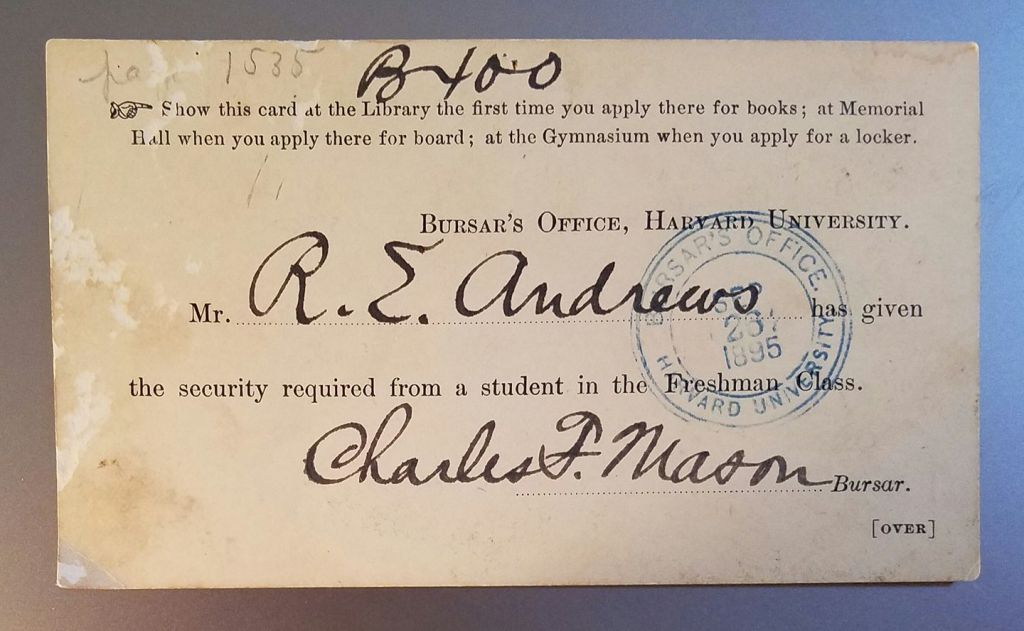 1535 B400
Show this card at the Library the first time you apply there for books; at Memorial
Hall when you apply there for board; at the Gymnasium when you apply for a locker.
BURSAR'S OFFICE, HARVARD UNIVERSITY.
Mr. R. E. Andrews has given
the security required from a student in the Freshman Class.
Charles F. Mason Bursar.
[OVER]
BURSAR'S OFFICE.
1895
HARVARD UNIVERSITY